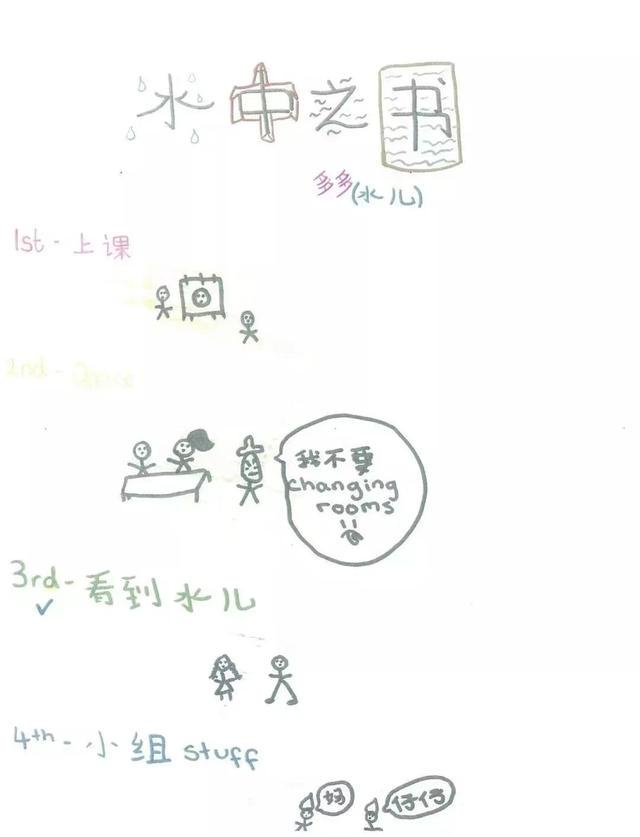 水中之书
多多(水儿)
1st - 上课
2nd - Office
我不要
changing
rooms
!!
3rd - 看到水儿
4th - 小组 stuff
好
仔仔